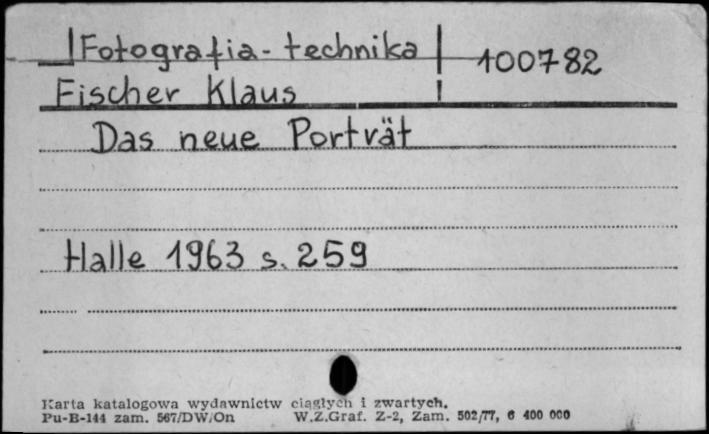 Fotografia-technika 100782
Fischer Klaus
Das neue Porträt
Halle 1963 s. 259
Karta katalogowa wydawnictw ciągłych i zwartych.
Pu-B-144 zam. 567/DW/On W.Z.Graf. Z-2, Zam. 502/77, 6 400 000